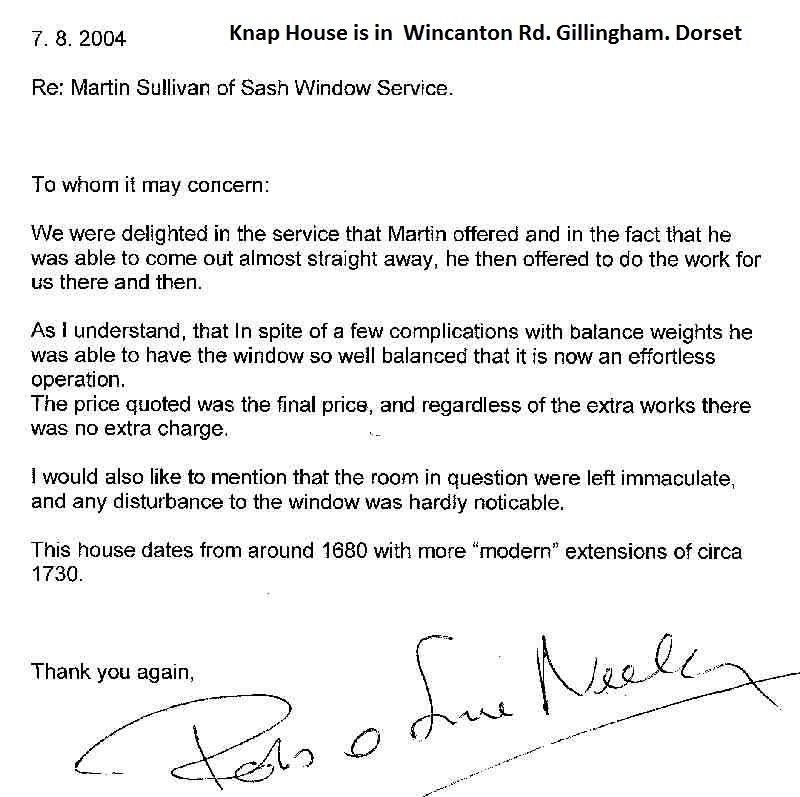 7. 8. 2004
Knap House is in Wincanton Rd. Gillingham. Dorset
Re: Martin Sullivan of Sash Window Service.
To whom it may concern:
We were delighted in the service that Martin offered and in the fact that he
was able to come out almost straight away, he then offered to do the work for
us there and then.
As I understand, that In spite of a few complications with balance weights he
was able to have the window so well balanced that it is now an effortless
operation.
The price quoted was the final price, and regardless of the extra works there
was no extra charge.
I would also like to mention that the room in question were left immaculate,
and any disturbance to the window was hardly noticable.
This house dates from around 1680 with more “modern” extensions of circa
1730.
Thank you again,